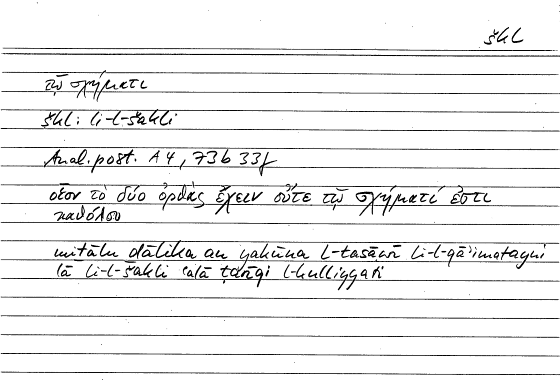 škl
τῷ σχήματι
škl: li-l-šakli
Anal. post. A 4, 73b 33f
οἷον τὸ δύο ὀρθὰς ἔχειν οὔτε τῷ σχήματί ἐστι
καθόλου
miṯālu ḏālika an yakūna l-tasāwī li-l-qāʾimatayni
lā li-l-šakli ʿalā ṭarīqi l-kulliyyati